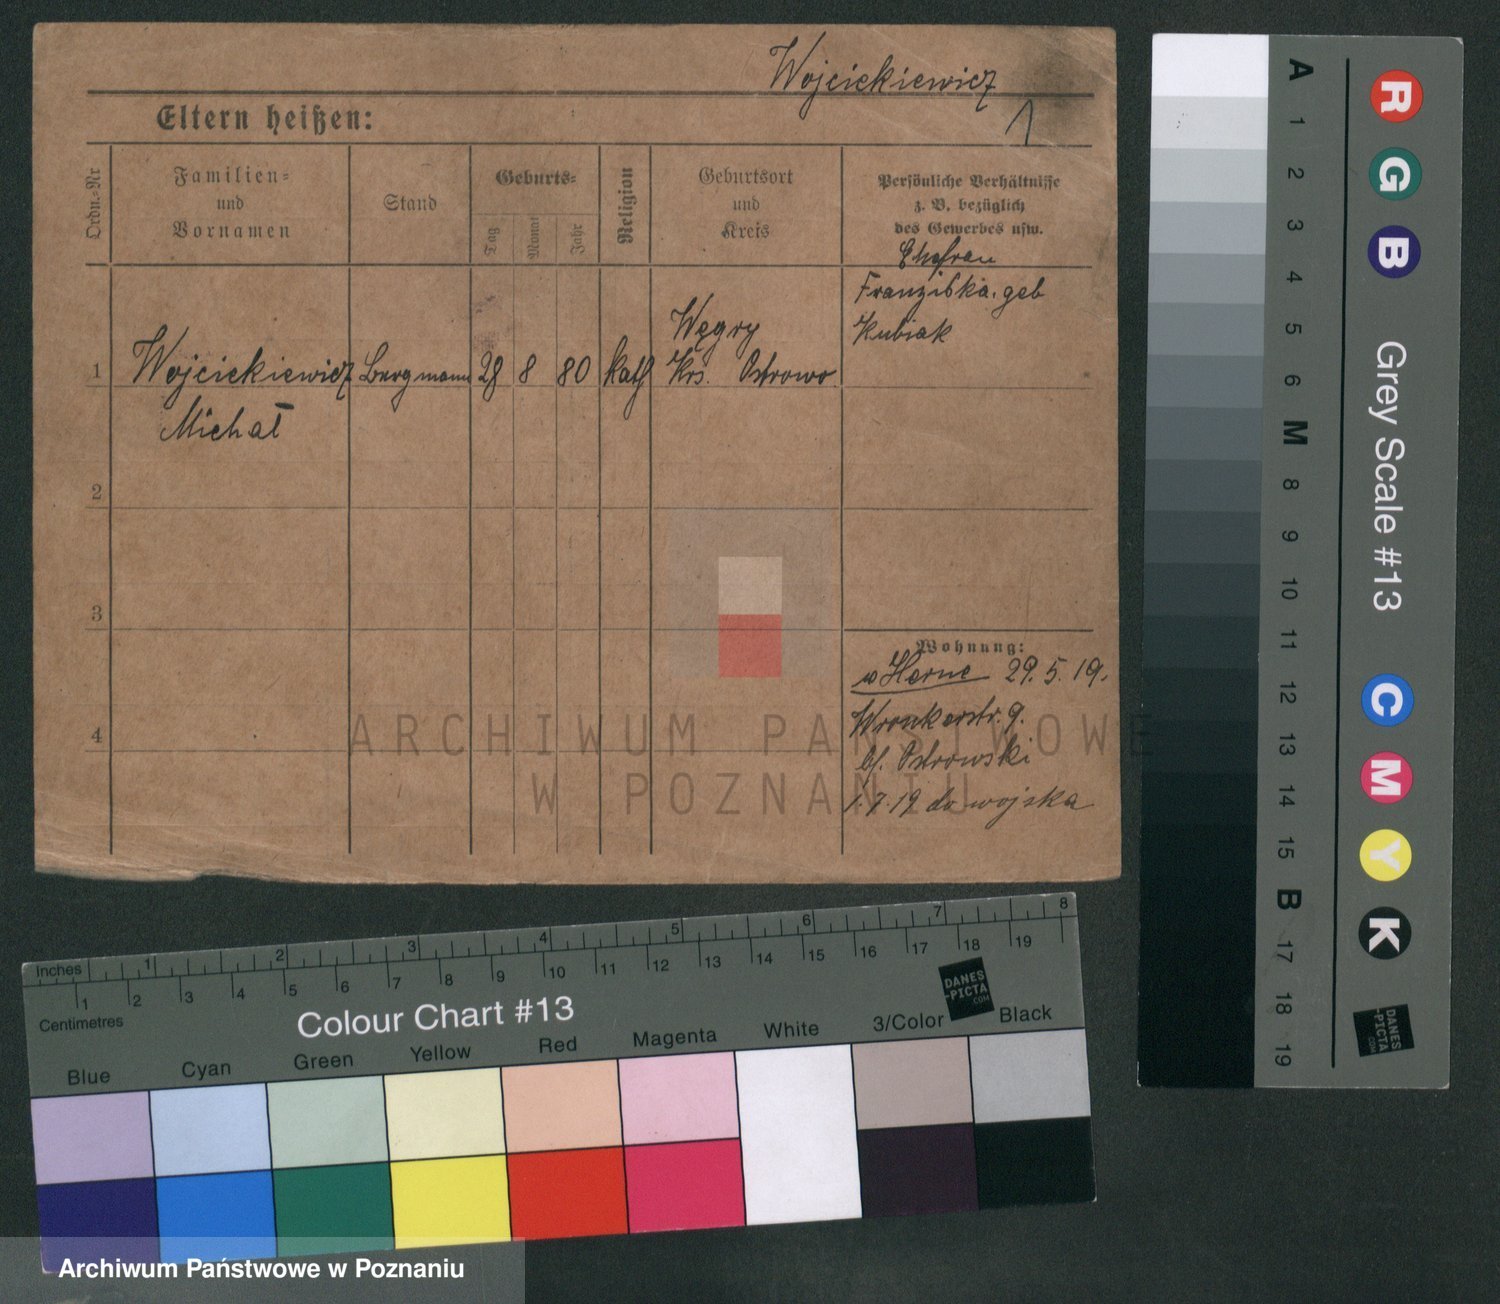 Wojciekiewicz
1
Eltern heißen:
Ordn.-Nr
Familien-
und
Vornamen
Stand
Geburts-
Tag
Monat
Jahr
Religion
Geburtsort
und
Kreis
Persönliche Verhältnisse
z. B. bezüglich
des Gewerbes usw.
Ehefrau
Franziska. geb
Kubiak
1
Wojciekiewicz
Michał
Bergmann
28
8
80
kath
Węgry
Krs. Ostrowo
2
3
4
Wohnung:
Herne 29. 5. 19.
Wronkerstr. 9.
bf. Ostrowski
1.7.19 do wojska
ARCHIWUM PAŃSTWOWE
W POZNANIU
A
1
2
3
4
5
6
M
8
9
10
11
12
13
14
15
B
17
18
19
R
G
B
Grey Scale #13
C
M
Y
K
DANES
-PICTA
.COM
Inches
1
2
3
4
5
6
7
8
1
2
3
4
5
6
7
8
9
10
11
12
13
14
15
16
17
18
19
Centimetres
Colour Chart #13
DANES
-PICTA
.COM
Blue
Cyan
Green
Yellow
Red
Magenta
White
3/Color
Black
Archiwum Państwowe w Poznaniu